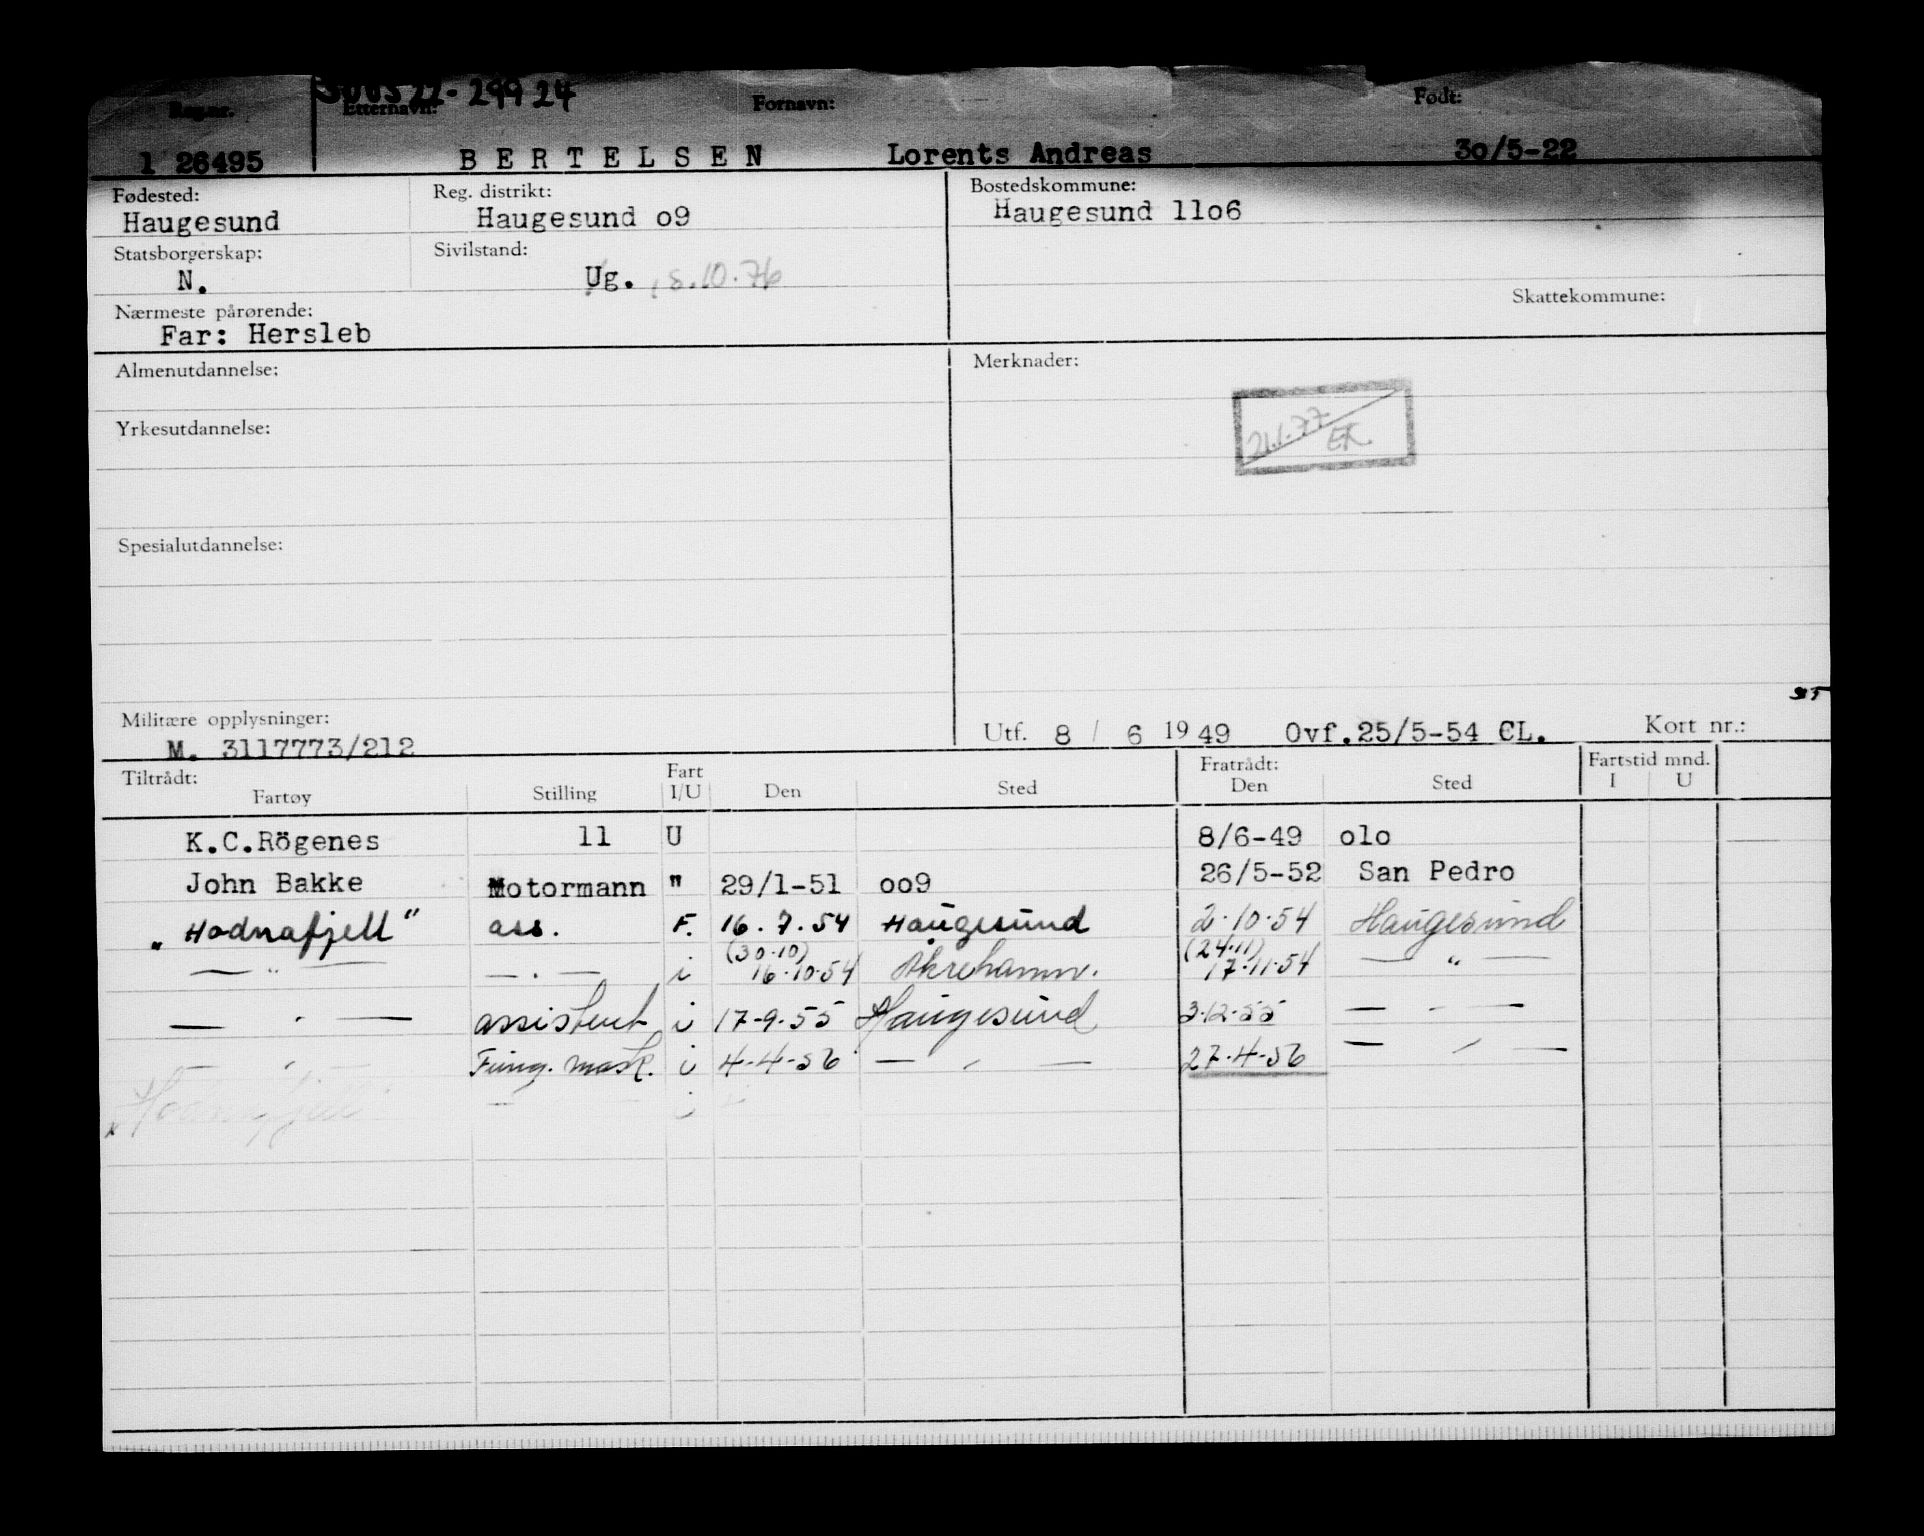 300522-29924
Reg.nr. Etternavn: Fornavn: Født:
1 26495 BERTELSEN Lorents Andreas 3o/5-22
Fødested: Reg. distrikt: Bostedskommune:
Haugesund Haugesund o9 Haugesund 11o6
Statsborgerskap: Sivilstand:
N. Ug. 15.10.76
Nærmeste pårørende: Skattekommune:
Far: Hersleb
Almenutdannelse: Merknader:
21.1.77 EK.
Yrkesutdannelse:
Spesialutdannelse:
Militære opplysninger:
M. 3117773/212 Utf. 8 / 6 1949 Ovf.25/5-54 CL. Kort nr.:
Tiltrådt: Fart Fratrådt: Fartstid mnd.
Fartøy Stilling I/U Den Sted Den Sted I U
K.C.Rögenes 11 U 8/6-49 o1o
John Bakke Motormann " 29/1-51 oo9 26/5-52 San Pedro
"Hodnafjell" ass. F. 16.7.54 Haugesund 2.10.54 Haugesund
(30.10) (24.11)
— " — — . — i 16.10.54 Åkrehamn. 17.11.54 — " —
— " — assistent i 17-9-55 Haugesund 3.12.55 — " —
" Fung. mask. i 4-4-56 — " — 27.4-56 — " —
"Hodnafjell" — i